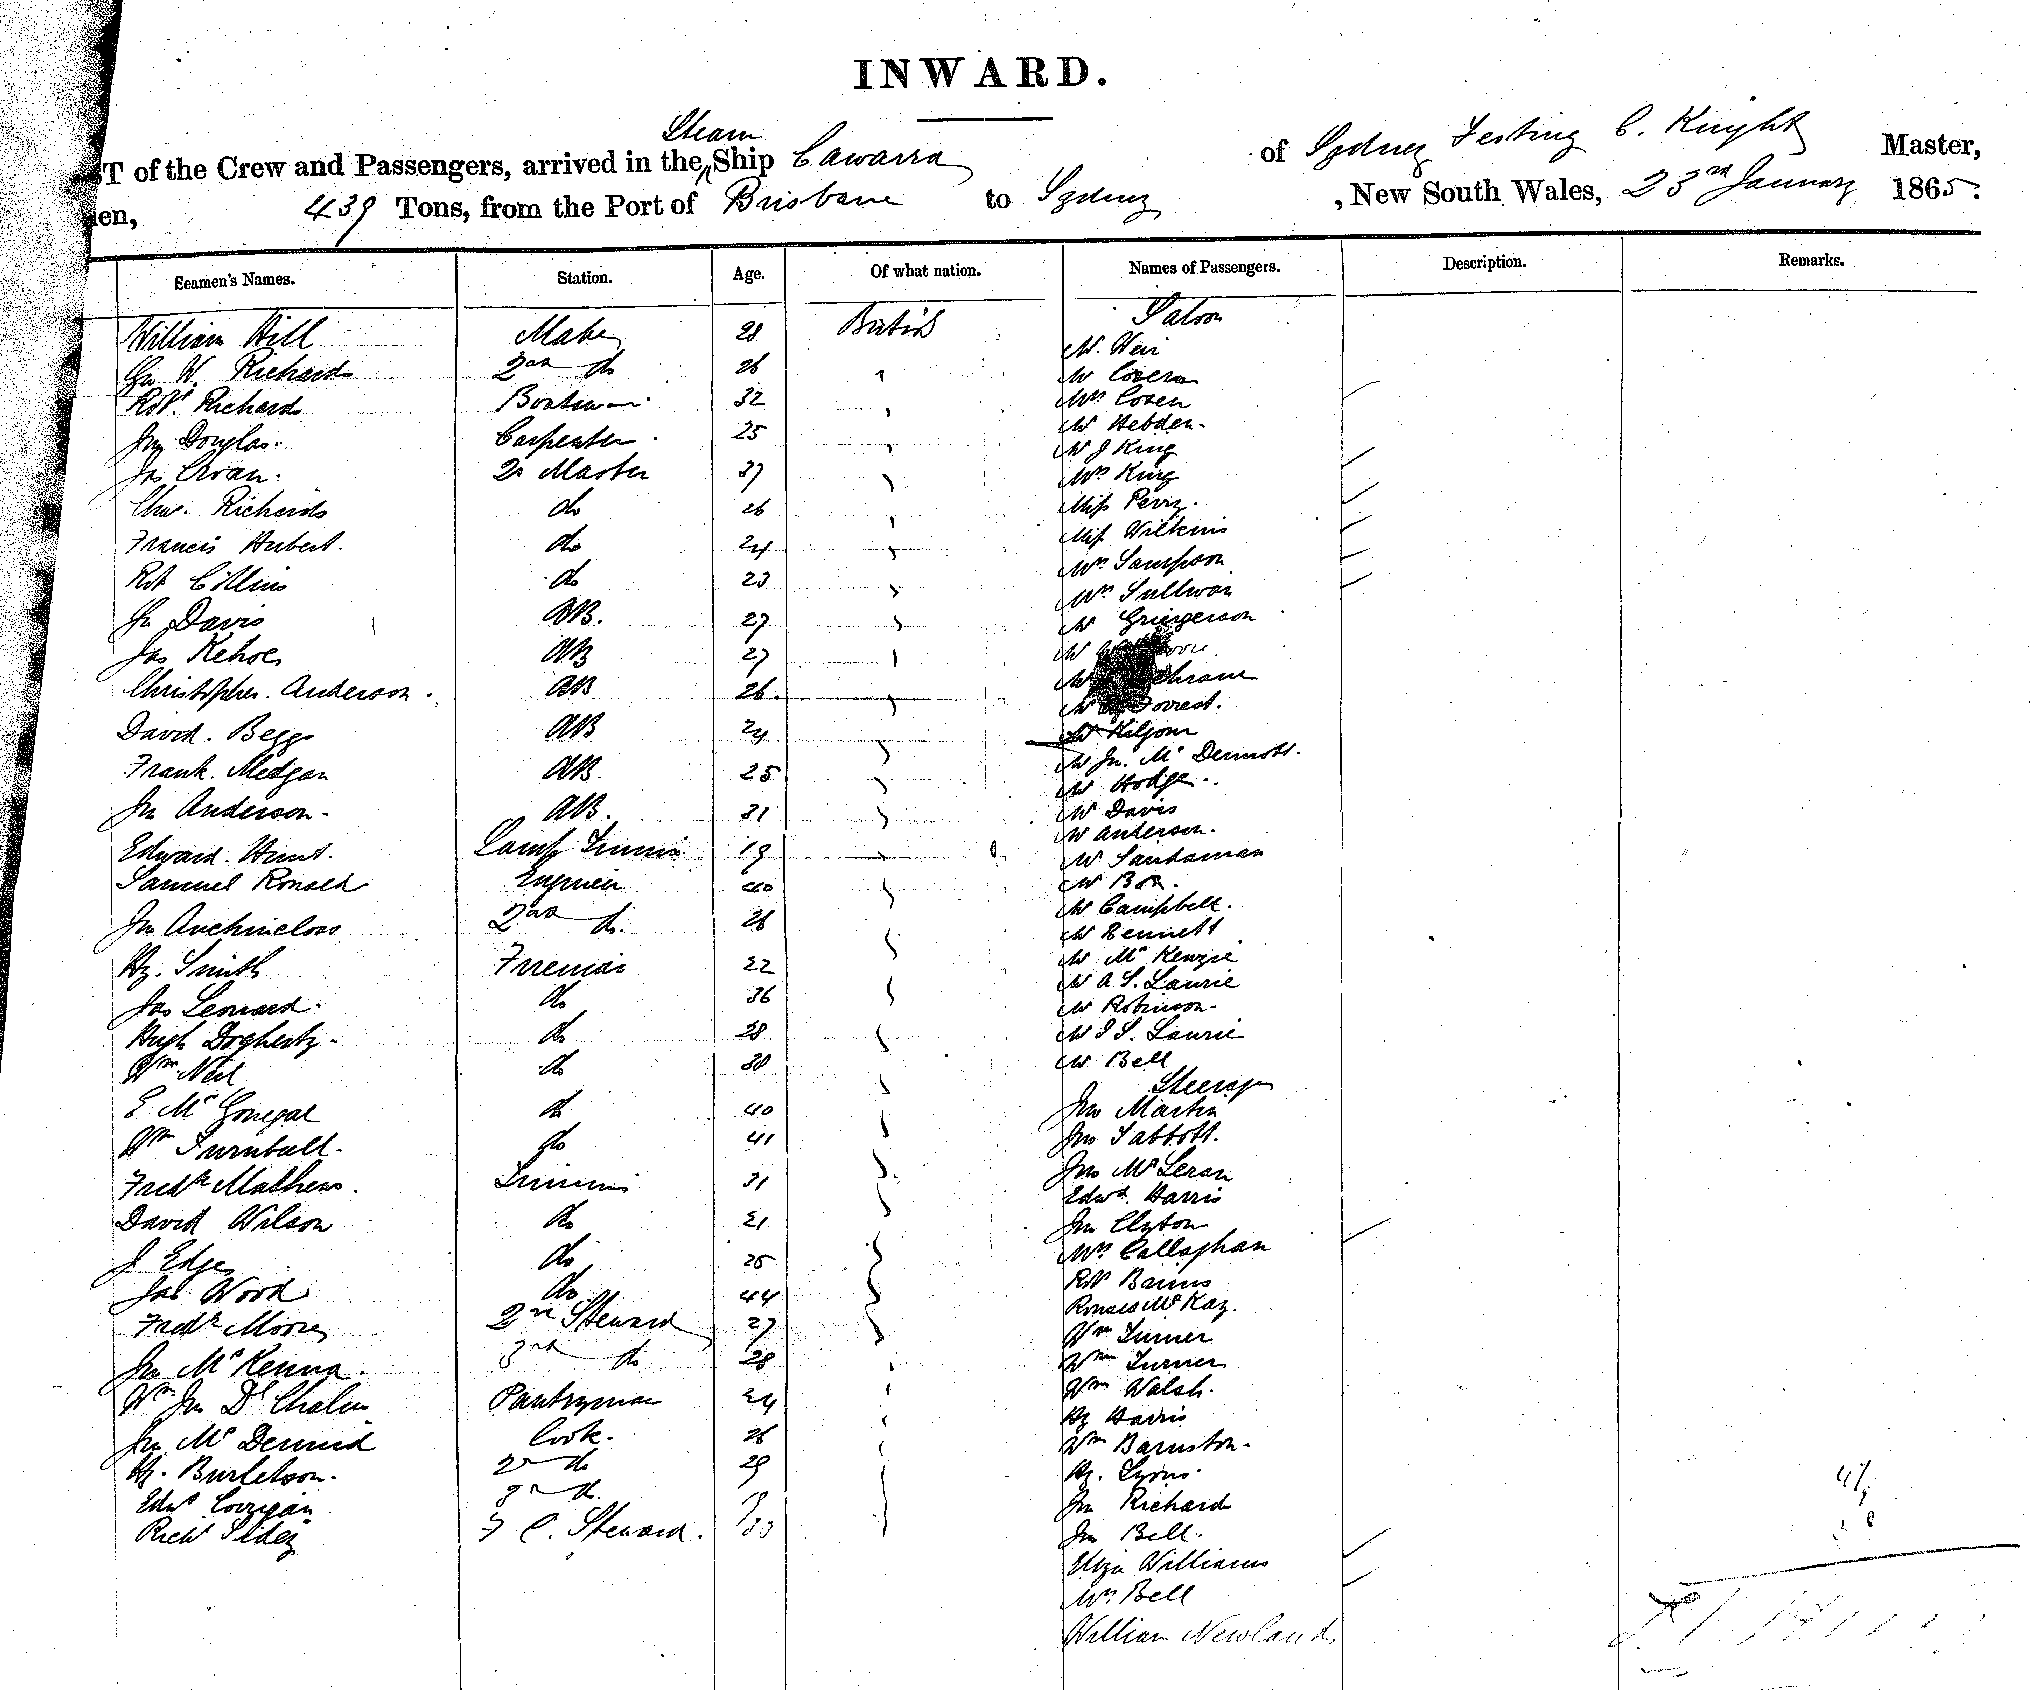 INWARD.
Steam
ST of the Crew and Passengers, arrived in the Ship Cawarra of Sydney Testing C. Knight Master,
en, 439 Tons, from the Port of Brisbane to Sydney , New South Wales, 23rd January 1865.
Seamen's Names. Station. Age. Of what nation. Names of Passengers. Description. Remarks.
Saloon
William Hill Mate 28 British
Mr. Weir
Jn W. Richards 2nd do 26
Mr Coxen
Robt. Richards Boatswain 32
Mrs Coxen
Mr Hebden.
Jn Douglas. Carpenter. 25
Mr J King
Jas Swan. Qr Master 37
Mrs King
Miss Perry.
Chas. Richards do 26
Miss Wilkins
Francis Hubert. do 24
Mrs Sampson
Robt Collins do 23
Mrs Sullivan
Jn Davis AB. 27
Mr Griegerson
Jas Kehoe AB 27
Mr
Mr
Christopher. Anderson. AB 26.
Mr Forrest.
David. Begg AB 24
Mr Kilgour
Mr Jn. McDermott.
Frank. Medgan AB 25
Mr Hodge.
Jn Anderson. AB. 31
Mr Davis
Mr Anderson.
Edward. Hunt. Lamp Trimmer 19
Mr Santaman
Samuel Ronald Engineer 40
Mr Box.
Mr Campbell.
Jn Auchincloss 2nd do. 26
Mr Bennett
Hy. Smith Fireman 22
Mr McKenzie
Mr A S. Laurie
Jas Leonard. do 36
Mr Robinson.
Hugh Dogherty. do 28
Mr J S. Laurie
Wm Neil do 30
Mr Bell
Steerage
E McGonegal do 40
Jno Martin
Wm Turnbull. do 41
Jno Tabbott.
Jno McLeran
Fredk Mathews. Trimmer 31
Edwd. Harris
David Wilson do 21
Jn Clyton
Mrs Callaghan
J Edge do 25
Robt Barnes
Jas Wood do 44
Ronald McKay.
Fredk Moore 2nd Steward 27
Wm Turner
Jn McKenna. 3rd do 28
Wm Turner
Wm Jn D. Chalin Pantryman 24
Wm Walsh.
Hy Harris
Jn McDermid Cook. 26
Wm Barnston.
Hy. Burletson. 2nd do 29
Hy. Lyons.
Edwd Corrigan 3rd do. 19
Jn Richard
Richd Sidey F C. Steward. 33
Jn Bell.
Eliza Williams
Mrs Bell
William Newland